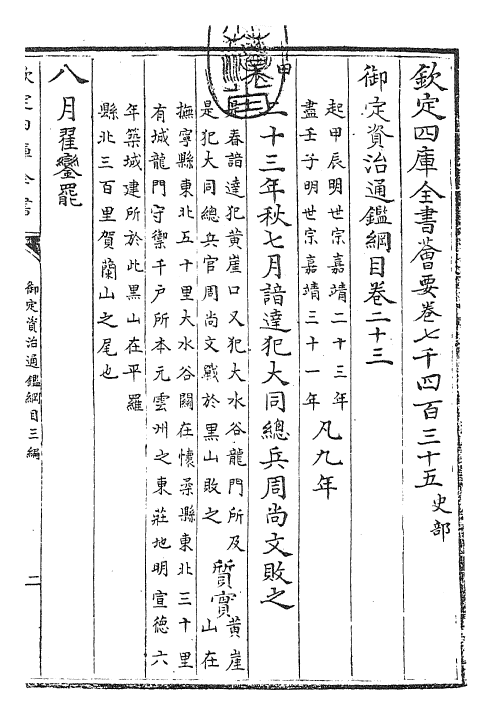 欽定四庫全書薈要卷七千四百三十五 史部
御定資治通鑑綱目卷二十三
起甲辰明世宗嘉靖二十三年
盡壬子明世宗嘉靖三十一年 凡九年
二十三年秋七月諳達犯大同總兵周尚文敗之
是春諳達犯黃崖口又犯大水谷龍門所及
是犯大同總兵官周尚文戰於黑山敗之
質實
黃崖
山在
撫寧縣東北五十里大水谷關在懷柔縣東北三十里
有城龍門守禦千戶所本元雲州之東莊地明宣德六
年築城建所於此黑山在平羅
縣北三百里賀蘭山之尾也
八月翟鑾罷
欽定四庫全書
御定資治通鑑綱目三編
二